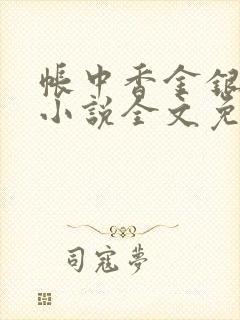 帳中香金銀
小說全文免
司寇夢